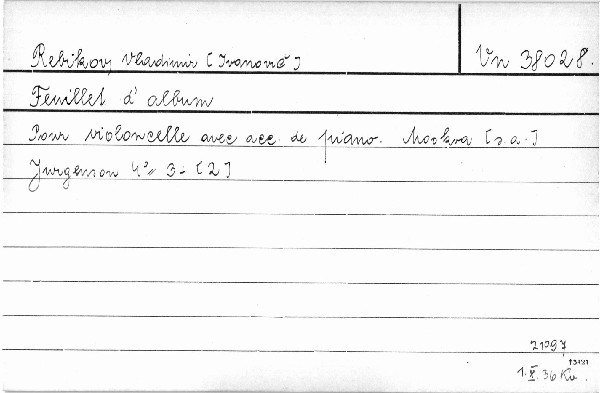 Rebikov, Vladimir [Ivanovič]
Vn 38028.
Feuillet d'album
Pour violoncelle avec acc. de piano. Moskva [s.a.]
Jurgenson 4° 3-[2]
21097
13121
1.X.36 Ku.